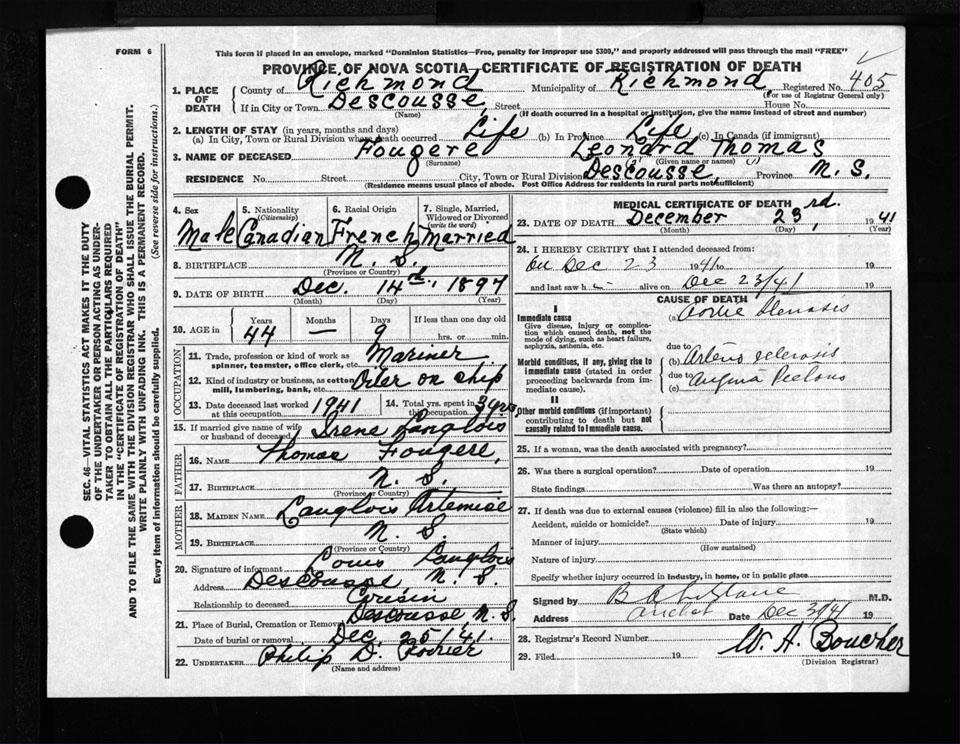 FORM 6
This form if placed in an envelope, marked "Dominion Statistics—Free, penalty for improper use $300," and properly addressed will pass through the mail "FREE"
PROVINCE OF NOVA SCOTIA—CERTIFICATE OF REGISTRATION OF DEATH
1. PLACE OF DEATH County of Richmond Municipality of Richmond Registered No. 405
(For use of Registrar General only)
If in City or Town Descousse, Street House No.
(Name) (If death occurred in a hospital or institution, give the name instead of street and number)
2. LENGTH OF STAY (in years, months and days)
(a) In City, Town or Rural Division where death occurred Life (b) In Province Life (c) In Canada (if immigrant)
3. NAME OF DECEASED Fougere Leonard Thomas
(Surname) (Given name or names)
RESIDENCE No. Street City, Town or Rural Division Descousse, Province N. S.
(Residence means usual place of abode. Post Office Address for residents in rural parts not sufficient)
SEC. 46—VITAL STATISTICS ACT MAKES IT THE DUTY
OF THE UNDERTAKER OR PERSON ACTING AS UNDER-
TAKER TO OBTAIN ALL THE PARTICULARS REQUIRED
IN THE "CERTIFICATE OF REGISTRATION OF DEATH"
AND TO FILE THE SAME WITH THE DIVISION REGISTRAR WHO SHALL ISSUE THE BURIAL PERMIT.
WRITE PLAINLY WITH UNFADING INK. THIS IS A PERMANENT RECORD.
Every item of information should be carefully supplied. (See reverse side for instructions.)
4. Sex 5. Nationality (Citizenship) 6. Racial Origin 7. Single, Married, Widowed or Divorced (write the word)
Male Canadian French Married
8. BIRTHPLACE N. S.
(Province or Country)
9. DATE OF BIRTH Dec. 14th, 1897
(Month) (Day) (Year)
10. AGE in Years Months Days If less than one day old
44 — 9 hrs. or min.
OCCUPATION
11. Trade, profession or kind of work as spinner, teamster, office clerk, etc. Mariner
12. Kind of industry or business, as cotton mill, lumbering, bank, etc. Oiler on ship
13. Date deceased last worked at this occupation 1941 14. Total yrs. spent in this occupation 3 yrs
15. If married give name of wife or husband of deceased Irene Langlois
FATHER
16. Name Thomas Fougere,
17. Birthplace N. S.
(Province or Country)
MOTHER
18. Maiden Name Langlois Artemise
19. Birthplace N. S.
(Province or Country)
20. Signature of informant Louis Langlois
Address Descousse N. S.
Relationship to deceased Cousin
21. Place of Burial, Cremation or Removal Descousse, N. S.
Date of burial or removal Dec. 25/41.
22. UNDERTAKER Philip D. Poirier
(Name and address)
MEDICAL CERTIFICATE OF DEATH
23. DATE OF DEATH December 23rd, 1941
(Month) (Day) (Year)
24. I HEREBY CERTIFY that I attended deceased from:
on Dec 23 1941 to 19
and last saw h alive on Dec 23/41 19
CAUSE OF DEATH
I
Immediate cause (a) Aortic Stenosis
Give disease, injury or complication which caused death, not the mode of dying, such as heart failure, asphyxia, asthenia, etc.
due to
Morbid conditions, if any, giving rise to immediate cause (stated in order proceeding backwards from immediate cause). (b) Arterio sclerosis
due to
(c) Angina Pectoris
II
Other morbid conditions (if important) contributing to death but not causally related to immediate cause.
25. If a woman, was the death associated with pregnancy?
26. Was there a surgical operation? Date of operation 19
State findings Was there an autopsy?
27. If death was due to external causes (violence) fill in also the following:—
Accident, suicide or homicide? Date of injury 19
(State which)
Manner of injury
(How sustained)
Nature of injury
Specify whether injury occurred in industry, in home, or in public place
Signed by B A LeBlanc M.D.
Address Arichat Date Dec 3/41 19
28. Registrar's Record Number
29. Filed 19 W. A. Boucher
(Division Registrar)